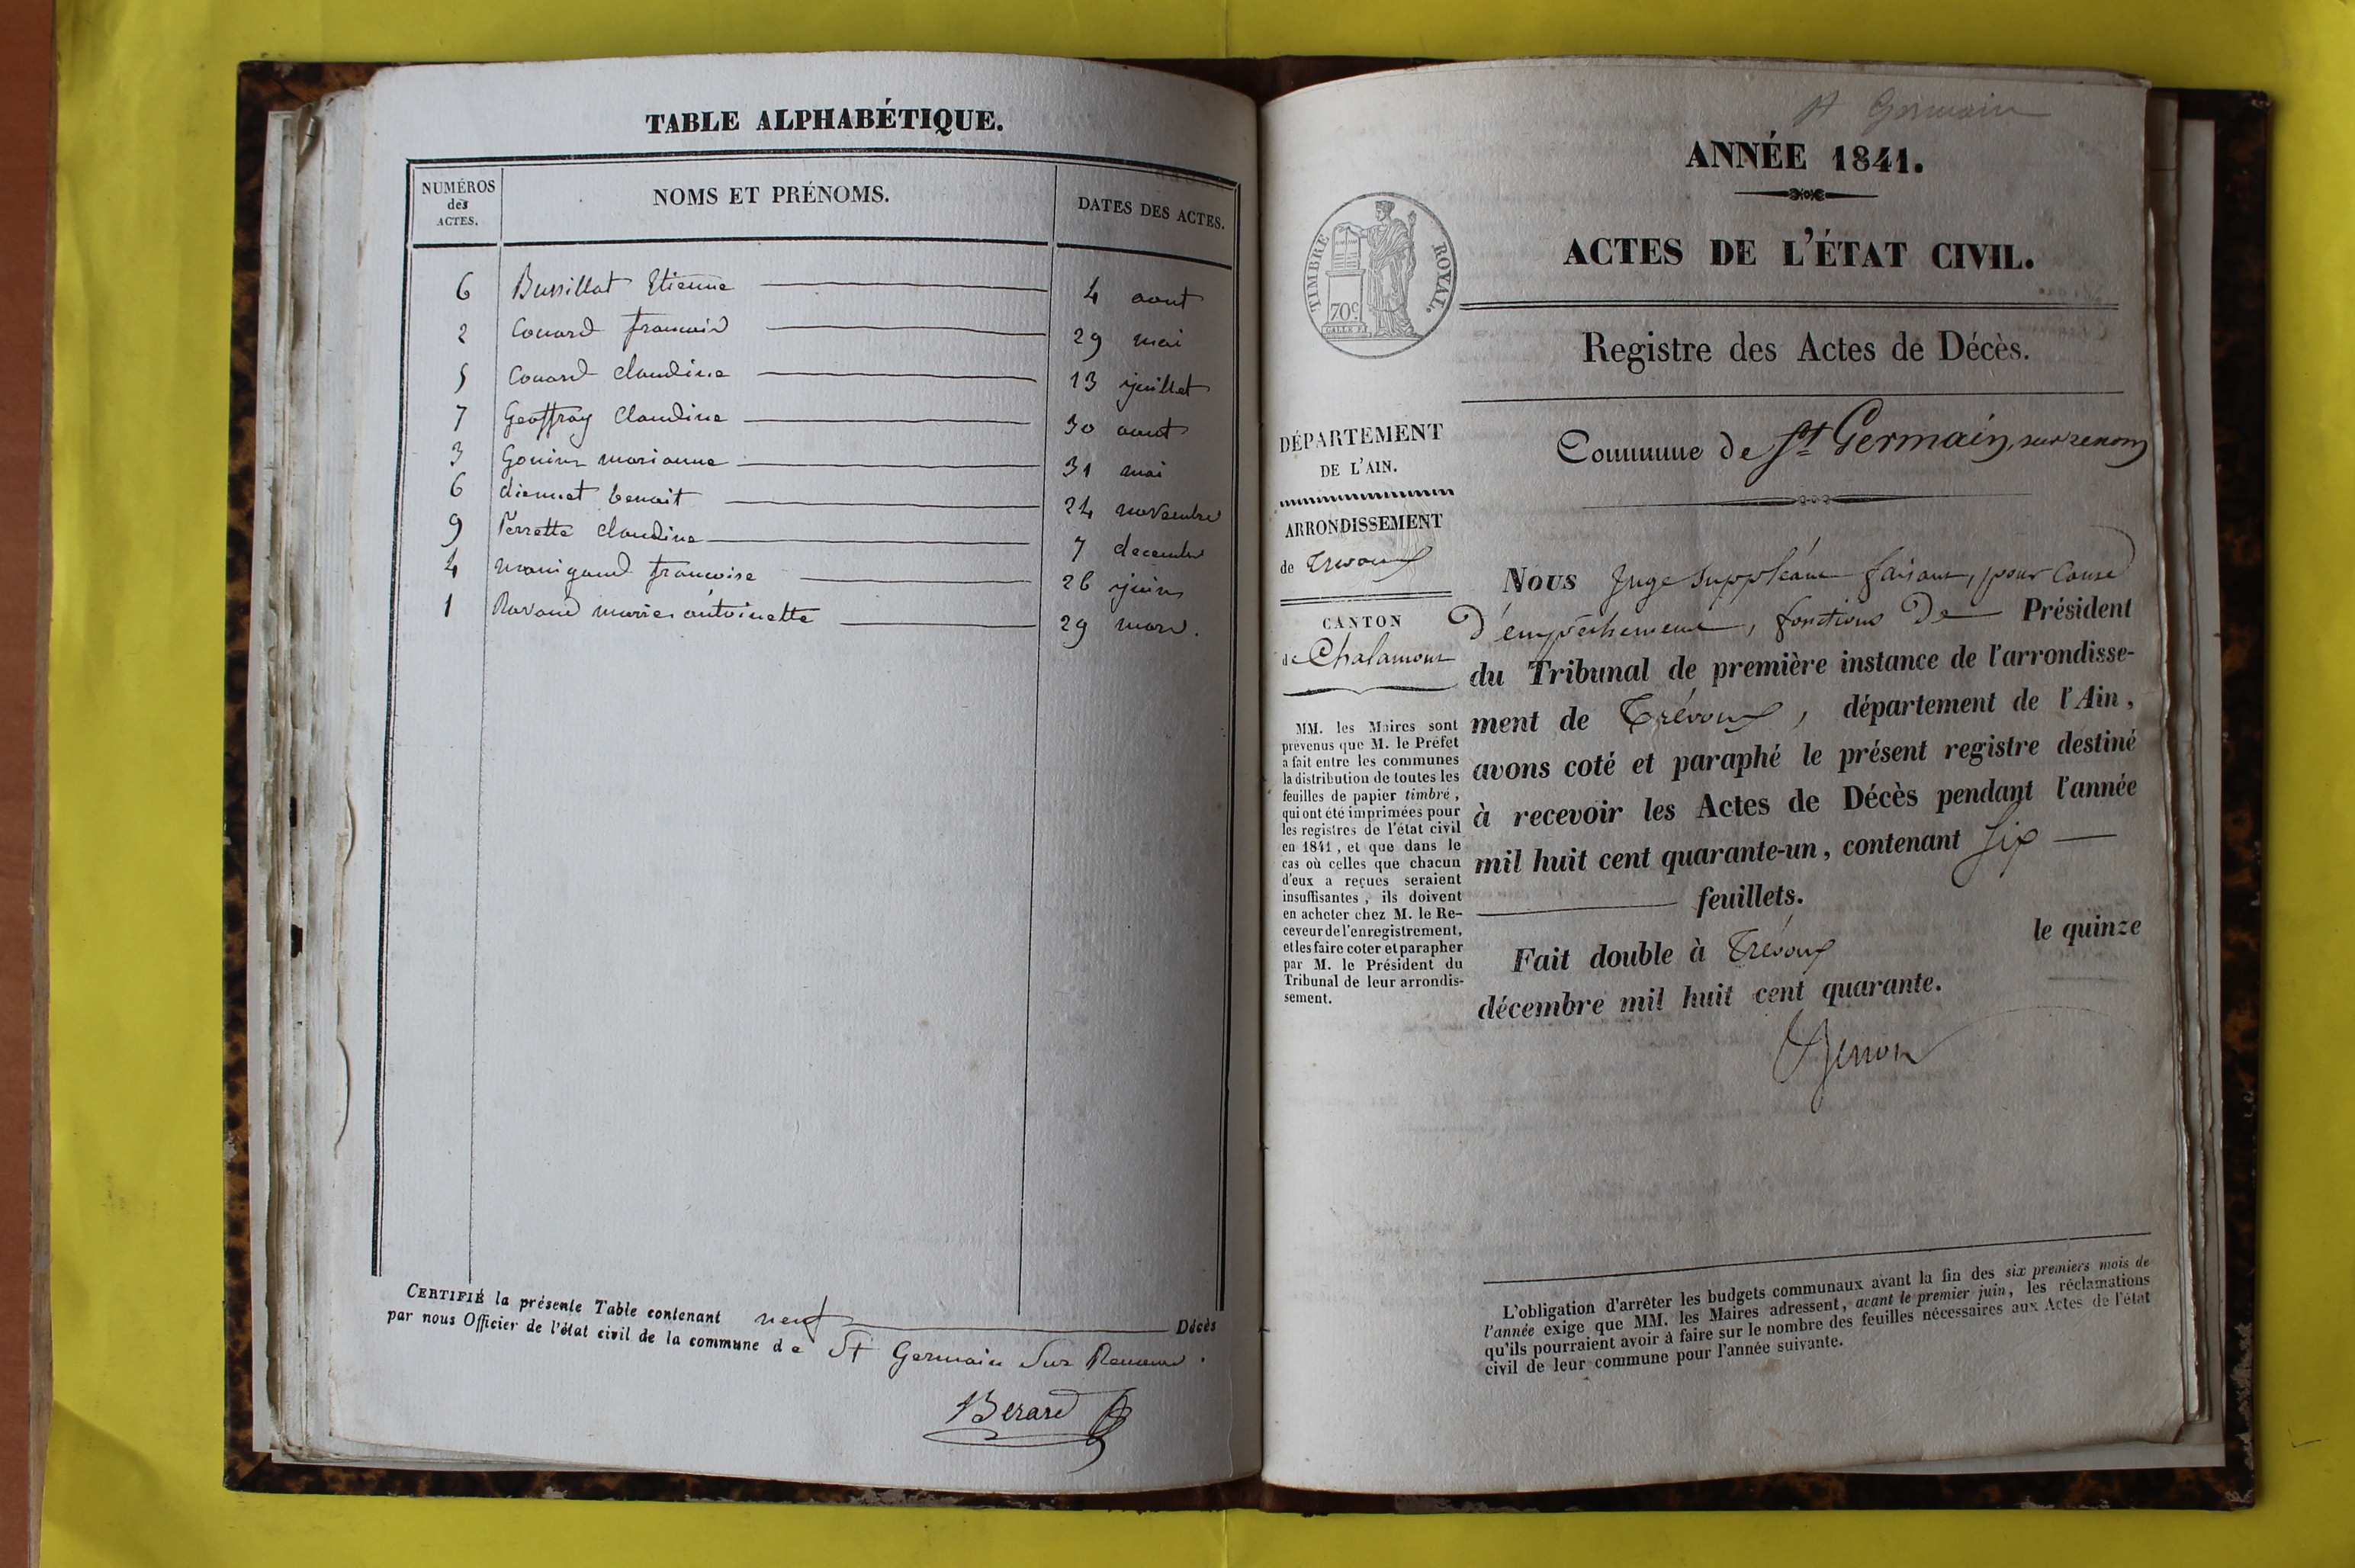 TABLE ALPHABÉTIQUE.
NUMÉROS
des
ACTES.
NOMS ET PRÉNOMS.
DATES DES ACTES.
6 Bussillat Etienne 4 aout
2 Couard francois 29 mai
5 Couard claudine 13 juillet
7 Geoffray Claudine 30 aout
3 Gonin marianne 31 mai
6 benoit 24 novembre
9 Perrette claudine 7 decembre
4 manigand francoise 26 juin
1 Ravaud marie antoinette 29 mars.
CERTIFIÉ la présente Table contenant neuf Décès
par nous Officier de l'état civil de la commune de St Germain Sur Renom.
Berard
St Germain
ANNÉE 1841.
ACTES DE L'ÉTAT CIVIL.
TIMBRE ROYAL.
70c
Registre des Actes de Décès.
Commune de St Germain, sur renom
DÉPARTEMENT
DE L'AIN.
ARRONDISSEMENT
de Trevoux
CANTON
de Chalamont
MM. les Maires sont
prévenus que M. le Préfet
a fait entre les communes
la distribution de toutes les
feuilles de papier timbré,
qui ont été imprimées pour
les registres de l'état civil
en 1841, et que dans le
cas où celles que chacun
d'eux a reçues seraient
insuffisantes, ils doivent
en acheter chez M. le Re-
ceveur de l'enregistrement,
et les faire coter et parapher
par M. le Président du
Tribunal de leur arrondis-
sement.
Nous Juge Suppléant faisant, pour Cause
d'empêchement, fonctions De Président
du Tribunal de première instance de l'arrondisse-
ment de Trévoux, département de l'Ain,
avons coté et paraphé le présent registre destiné
à recevoir les Actes de Décès pendant l'année
mil huit cent quarante-un, contenant Six
feuillets.
Fait double à Trévoux le quinze
décembre mil huit cent quarante.
L'obligation d'arrêter les budgets communaux avant la fin des six premiers mois de
l'année exige que MM. les Maires adressent, avant le premier juin, les réclamations
qu'ils pourraient avoir à faire sur le nombre des feuilles nécessaires aux Actes de l'état
civil de leur commune pour l'année suivante.